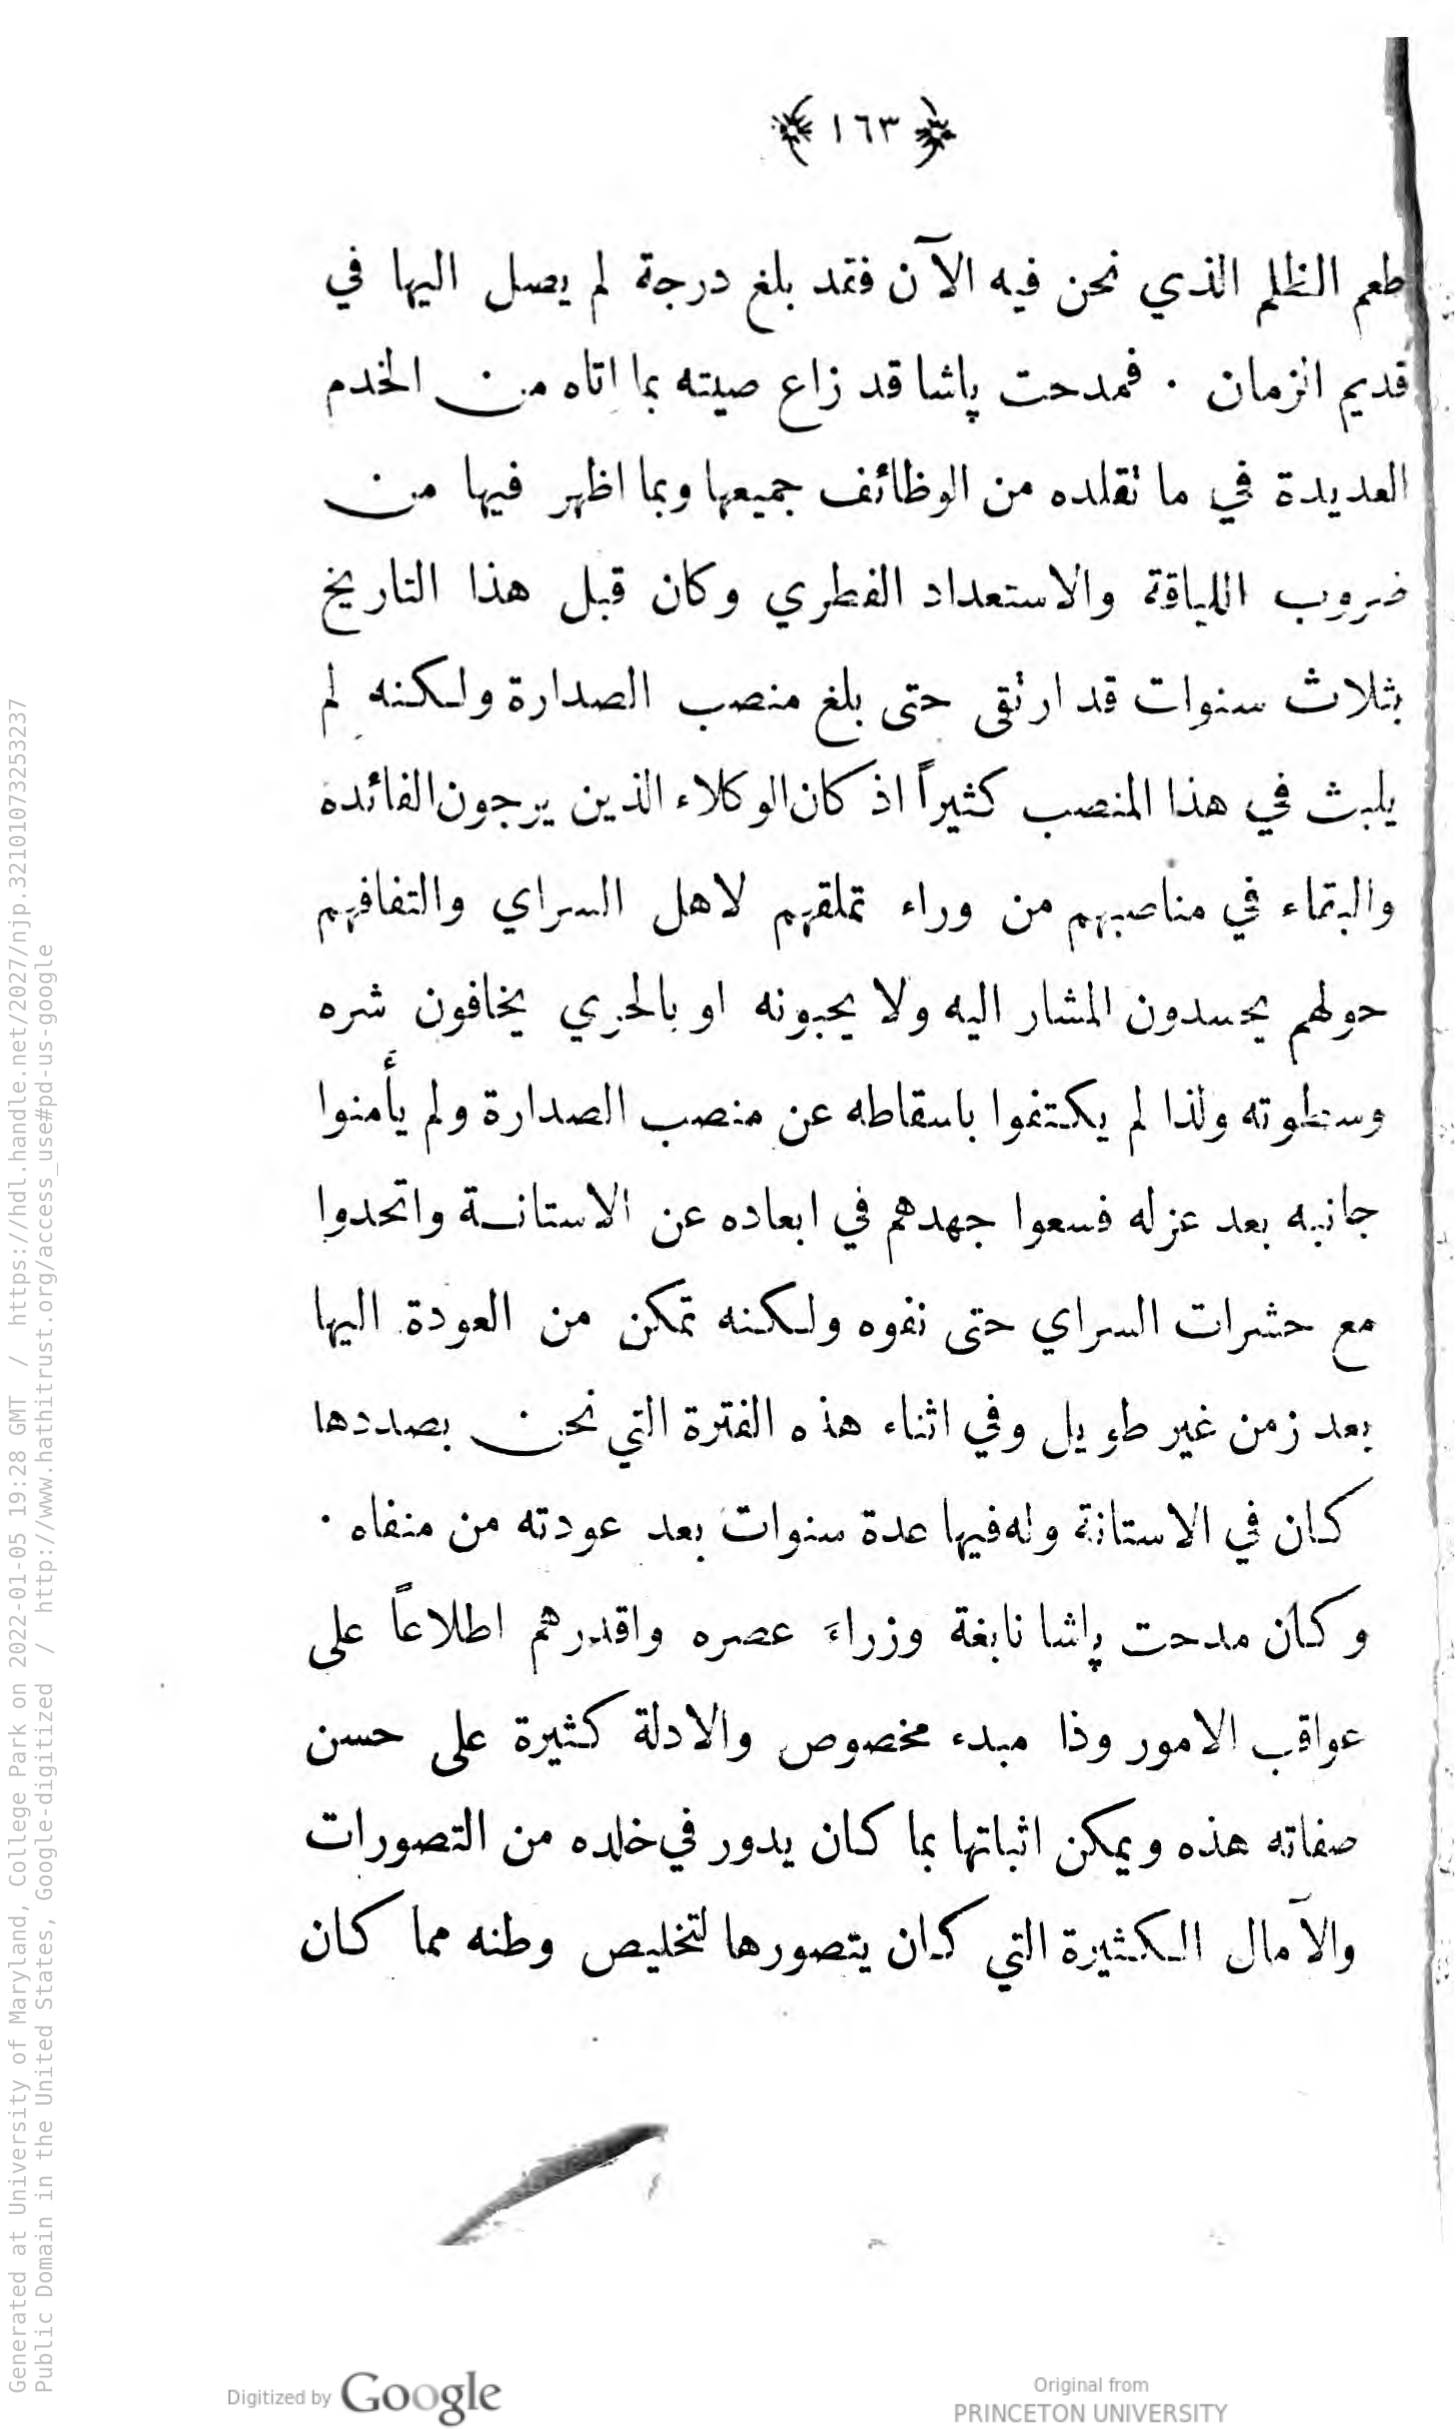 ﴿ ١٦٣ ﴾
طعم الظلم الذي نحن فيه الآن فقد بلغ درجة لم يصل اليها في
قديم الزمان ٠ فمدحت پاشا قد زاع صيته بما اتاه من الخدم
العديدة في ما تقلده من الوظائف جميعها وبما اظهر فيها من
ضروب اللياقة والاستعداد الفطري وكان قبل هذا التاريخ
بثلاث سنوات قد ارتقى حتى بلغ منصب الصدارة ولكنه لم
يلبث في هذا المنصب كثيراً اذ كان الوكلاء الذين يرجون الفائدة
والبقاء في مناصبهم من وراء تملقهم لاهل السراي والتفافهم
حولهم يحسدون المشار اليه ولا يحبونه او بالحري يخافون شره
وسطوته ولذا لم يكتفوا باسقاطه عن منصب الصدارة ولم يأمنوا
جانبه بعد عزله فسعوا جهدهم في ابعاده عن الاستانة واتحدوا
مع حشرات السراي حتى نفوه ولكنه تمكن من العودة اليها
بعد زمن غير طويل وفي اثناء هذه الفترة التي نحن بصددها
كان في الاستانة وله فيها عدة سنوات بعد عودته من منفاه ٠
وكان مدحت پاشا نابغة وزراءَ عصره واقدرهم اطلاعاً على
عواقب الامور وذا مبدء مخصوص والادلة كثيرة على حسن
صفاته هذه ويمكن اثباتها بما كان يدور في خلده من التصورات
والآمال الكثيرة التي كان يتصورها لتخليص وطنه مما كان
Generated at University of Maryland, College Park on 2022-01-05 19:28 GMT / https://hdl.handle.net/2027/njp.32101073253237
Public Domain in the United States, Google-digitized / http://www.hathitrust.org/access_use#pd-us-google
Digitized by Google
Original from
PRINCETON UNIVERSITY